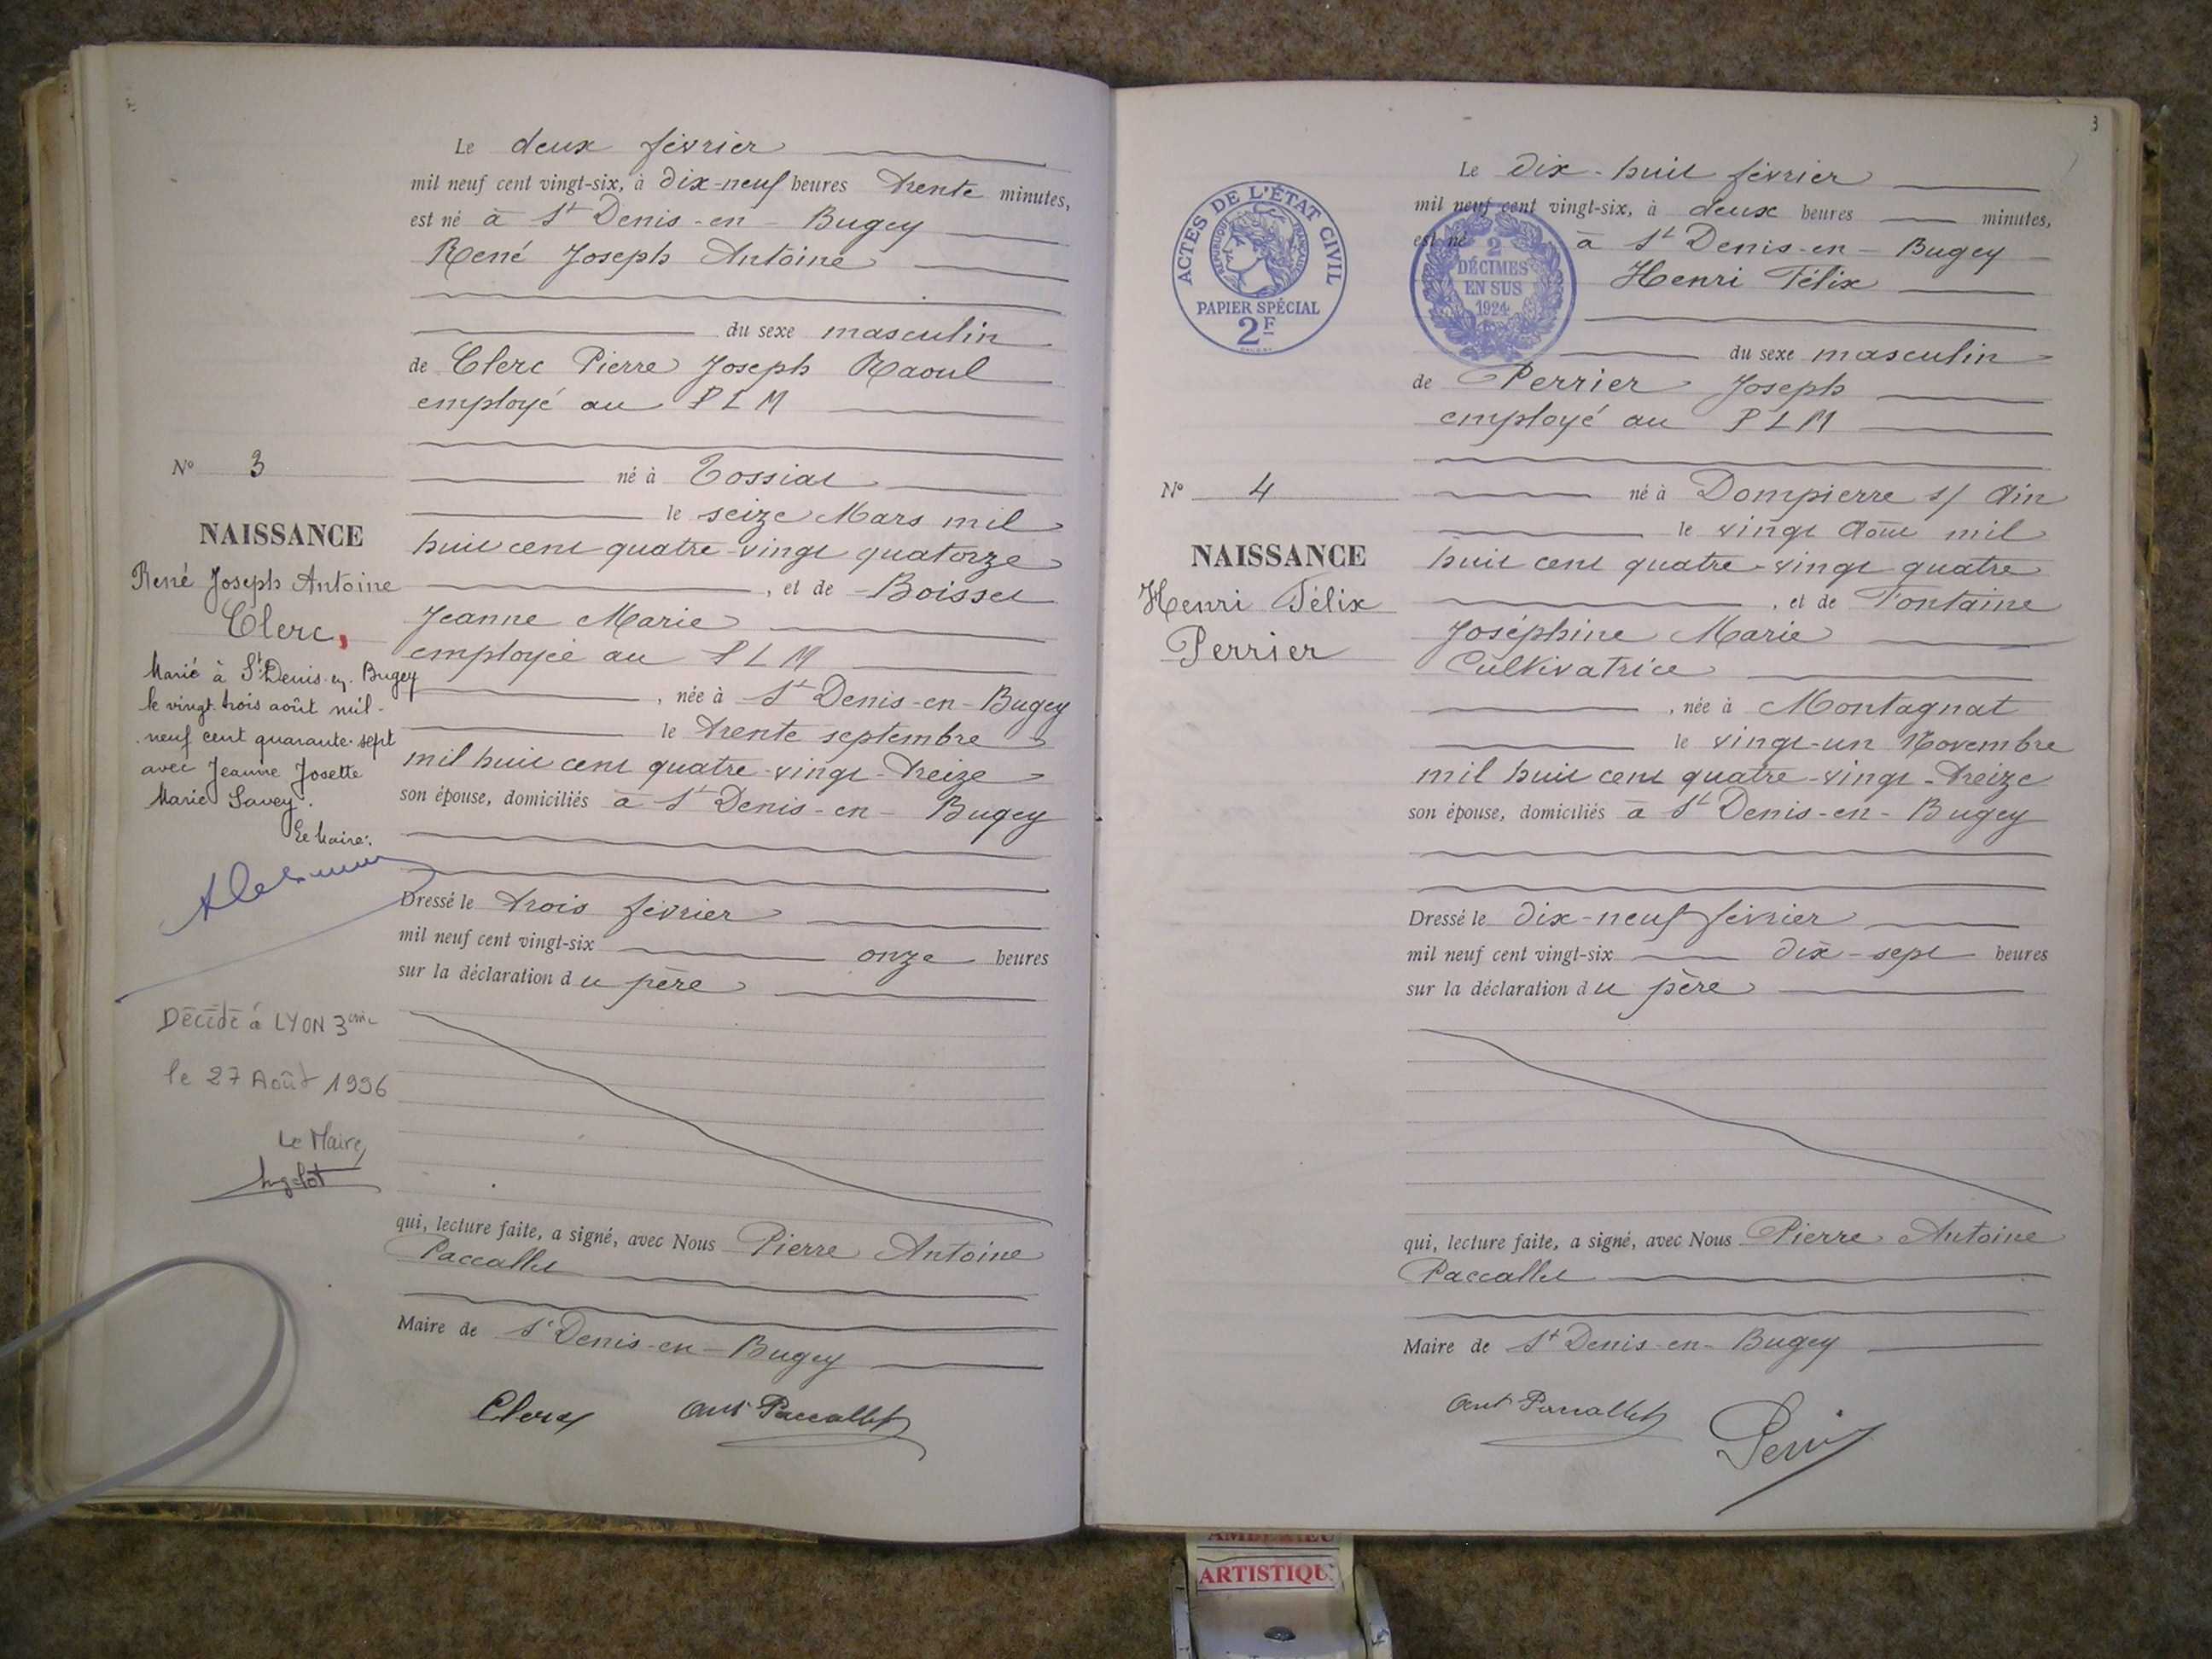 Le deux février
mil neuf cent vingt-six, à dix-neuf heures trente minutes,
est né à St Denis-en-Bugey
René Joseph Antoine
du sexe masculin
de Clerc Pierre Joseph Raoul
employé au PLM
né à Tossiat
le seize Mars mil
huit cent quatre-vingt quatorze
, et de Boisset
Jeanne Marie
employée au PLM
, née à St Denis-en-Bugey
le trente septembre
mil huit cent quatre-vingt-treize
son épouse, domiciliés à St Denis-en-Bugey
Dressé le trois février
mil neuf cent vingt-six onze heures
sur la déclaration du père
qui, lecture faite, a signé, avec Nous Pierre Antoine
Paccallet
Maire de St Denis-en-Bugey
Clerc Ant Paccallet
No 3
NAISSANCE
René Joseph Antoine
Clerc,
Marié à St Denis-en-Bugey
le vingt trois août mil-
neuf cent quarante-sept
avec Jeanne Josette
Marie Savey.
Le Maire:
Décédé à LYON 3ème
le 27 Août 1996
Le Maire,
3
ACTES DE L'ÉTAT CIVIL
RÉPUBLIQUE FRANÇAISE
PAPIER SPÉCIAL
2F
2
DÉCIMES
EN SUS
1924
Le dix-huit février
mil neuf cent vingt-six, à deux heures minutes,
est né à St Denis-en-Bugey
Henri Félix
du sexe masculin
de Perrier Joseph
employé au PLM
né à Dompierre s/ Ain
le vingt Août mil
huit cent quatre-vingt quatre
, et de Fontaine
Joséphine Marie
Cultivatrice
, née à Montagnat
le vingt-un Novembre
mil huit cent quatre-vingt-treize
son épouse, domiciliés à St Denis-en-Bugey
Dressé le dix-neuf février
mil neuf cent vingt-six dix-sept heures
sur la déclaration du père
qui, lecture faite, a signé, avec Nous Pierre Antoine
Paccallet
Maire de St Denis-en-Bugey
Ant Paccallet
No 4
NAISSANCE
Henri Félix
Perrier
ARTISTIQU